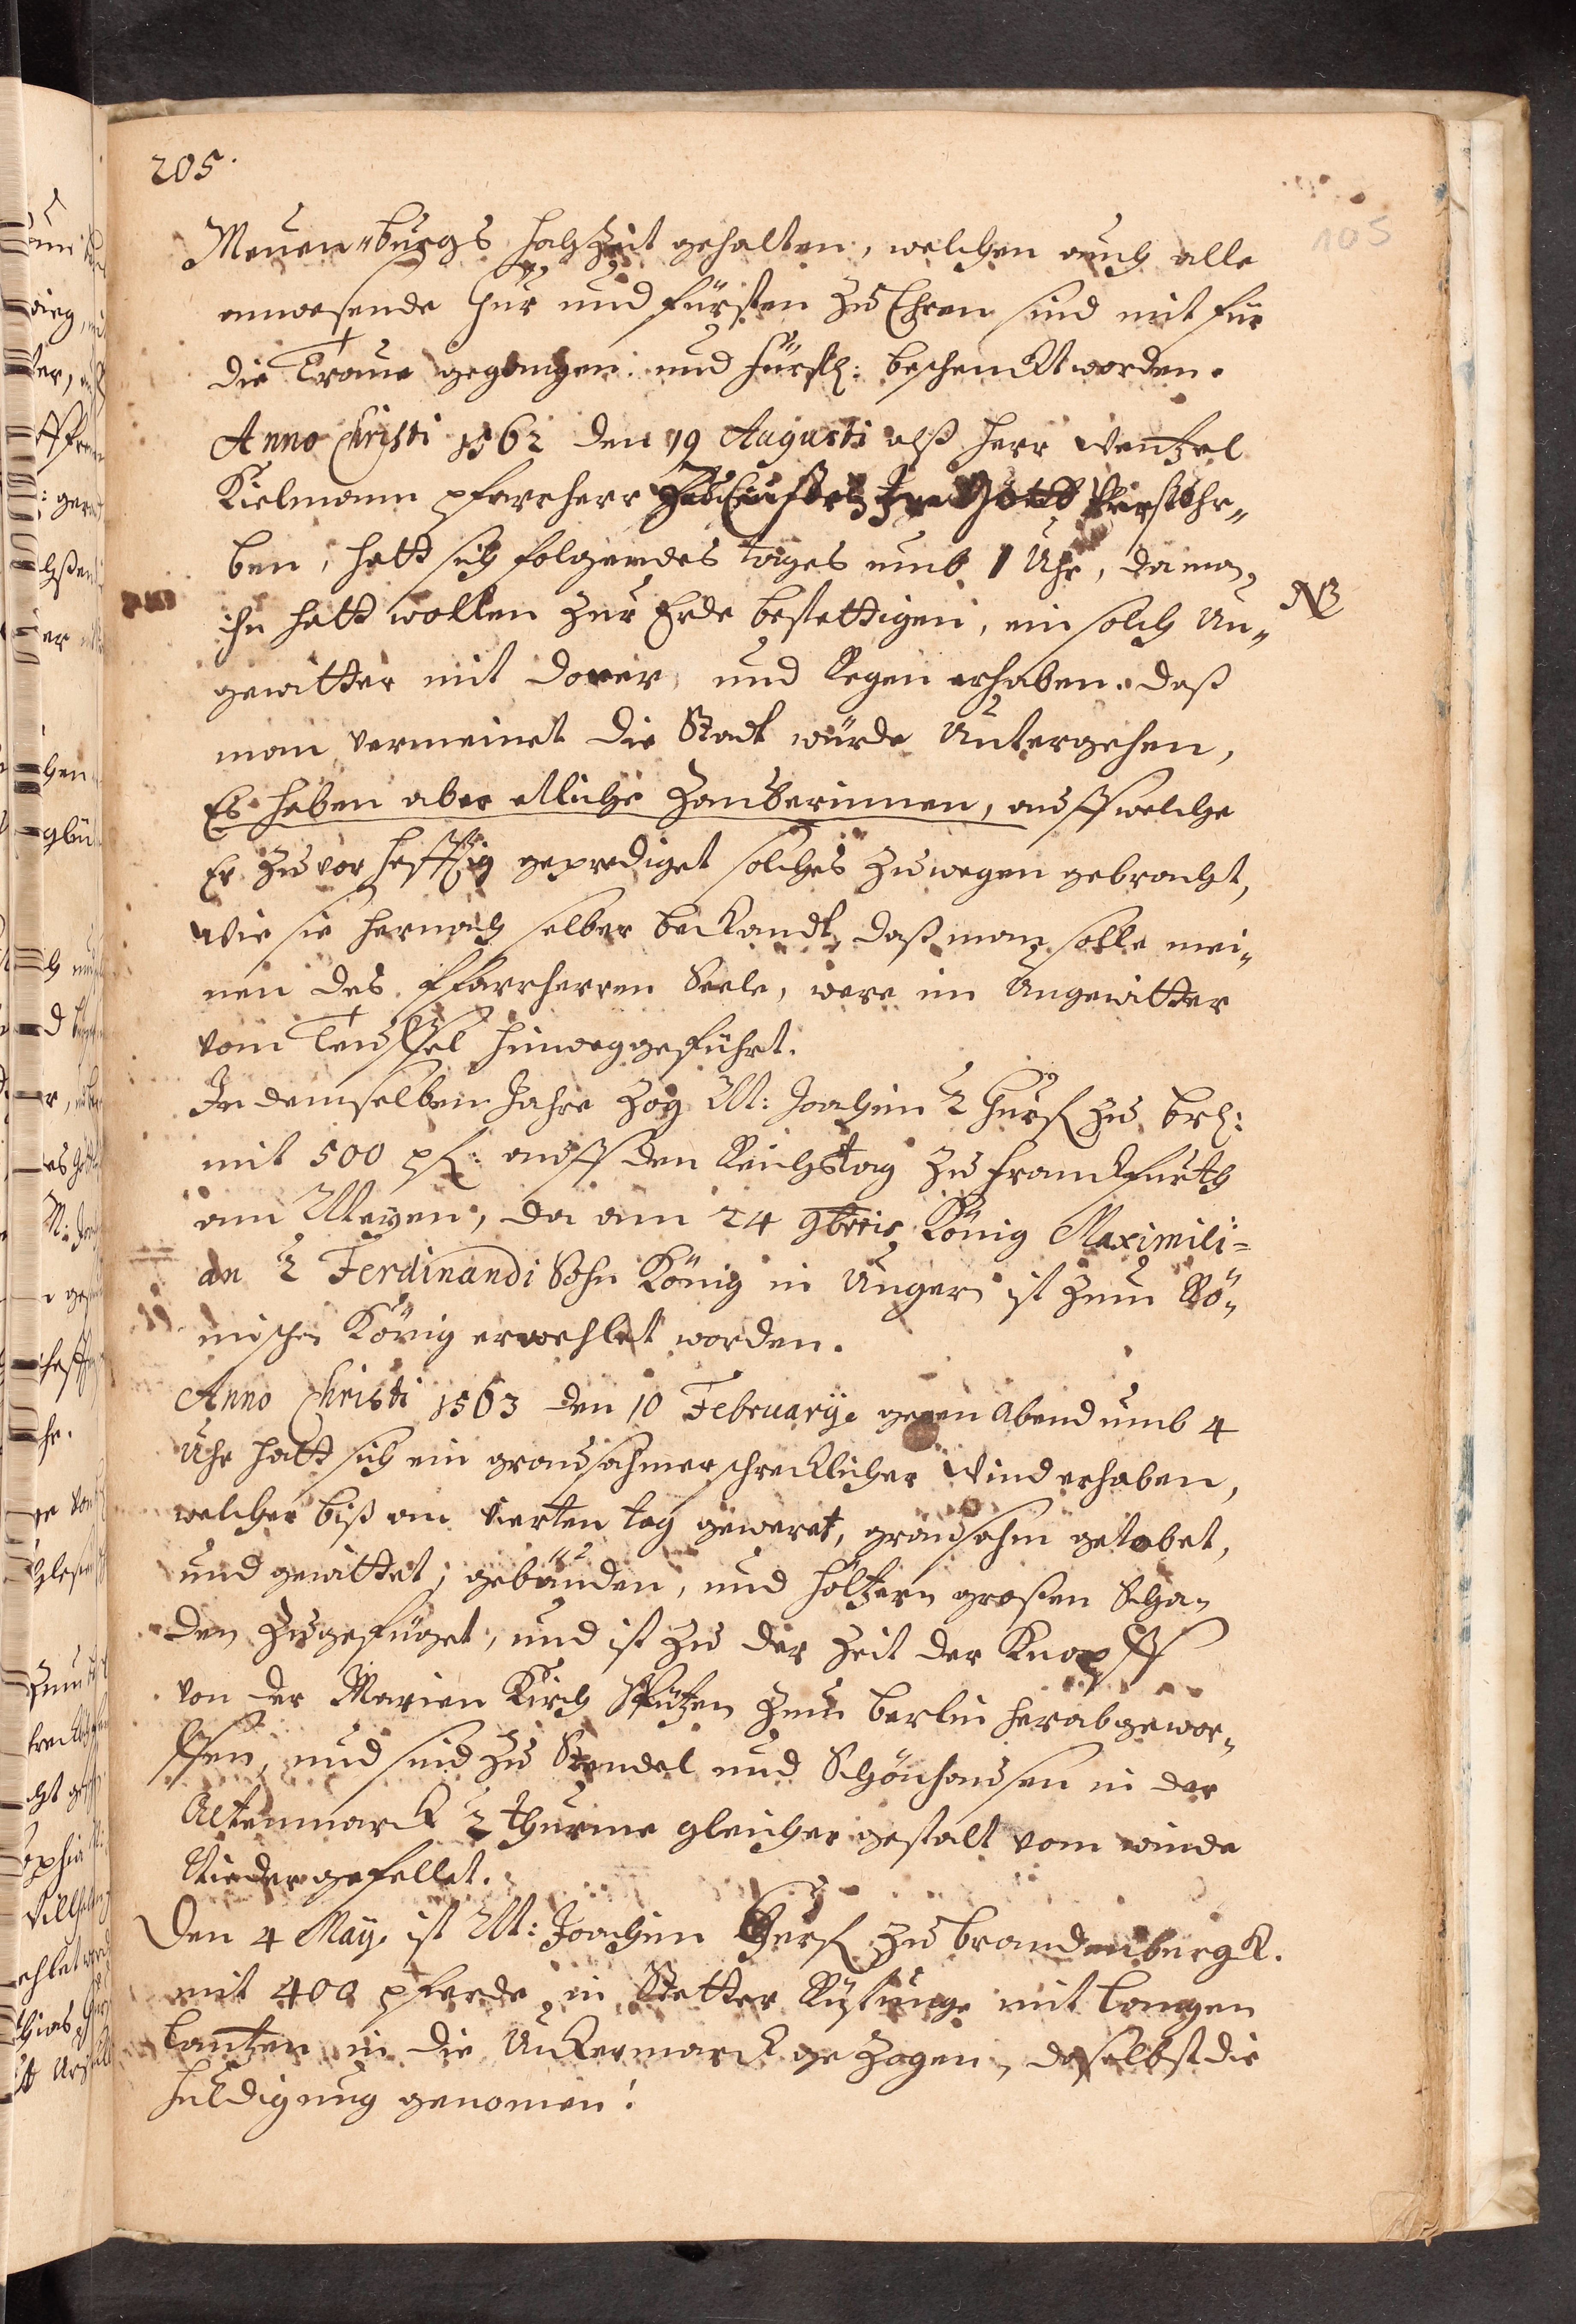 205.
105
Meuen"burgs hochzeit gehalten, welchen auch alle
anwesende Chur und fürsten zu Ehren sind mit für
die Traue gegangen und fürstl: beschenckt worden.
Anno Christi 1562 den 19 Augusti alß herr Wentzel
Kielmann pfarrherr zu in Gott verstohr„
ben, hatt sich folgendes tages umb 1 Uhr, da man
NB
ihn hatt wollen zur Erde bestettigen, ein solch Un„
gewitter mit doner und Regen erhaben. daß
man vermeinet die Stadt würde Untergehen,
Es haben aber etliche Zauberinnen, auff welche
Er zuvor hefftig geprediget solches zuwegen gebracht,
Wie sie hernach selber bekandt, daß man solle mei„
nen des Pfarrherren Seele, were im Ungewitter
vom Teuffel hinweggeführt.
In demselben Jahre zog M: Joachim 2 Churf zu br:
mit 500 pf: auff den Reichstag zu franckfurth
am Meyen, da am 24 9bris König Maximili=
an 2 Ferdinandi Sohn König in Ungern ist zum Rö„
mischen König erwehlet worden.
Anno Christi 1563 den 10 Februarÿ. gegen Abend umb 4
Uhr hatt sich ein grausahmer schrecklicher Wind erhaben,
welcher biß am vierten tag geweret, grausahm getobet,
und gewittet, gebäuden, und höltzern grossen Scha„
den zugefüget, und ist zu der zeit der Knopff
von der Marien Kirch Spitzen zum Berlin herabgewor„
ffen, und sind zu Stendel und Schönhausen in der
Altenmarck 2 thürme gleicher gestalt vom winde
Niedergefellet.
Den 4 Maÿ. ist M: Joachim Churf zu brandenburgk.
mit 400 pferde in Rüstunge mit langen
lantzen in die Uckermarck gezogen, daselbst die
huldigung genomen!